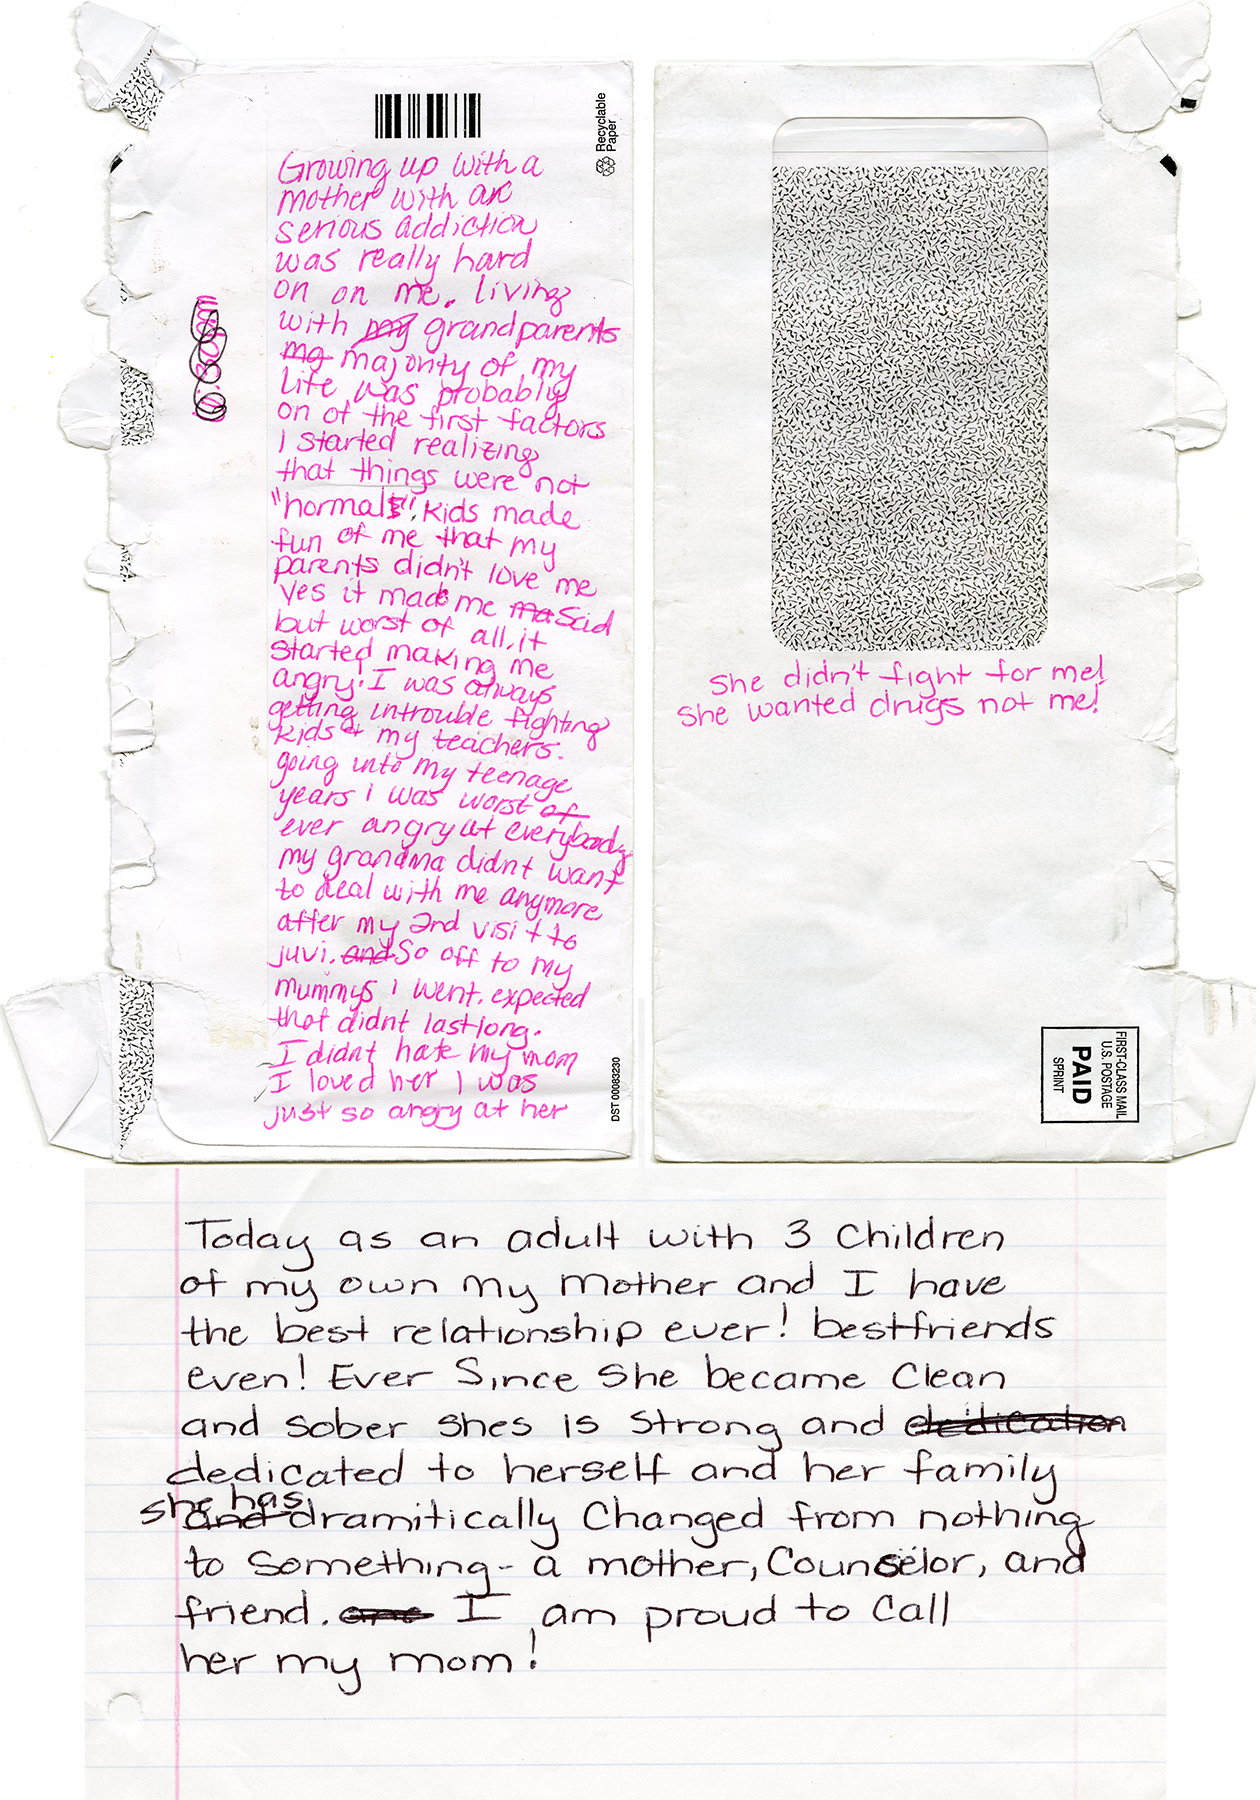 Recyclable
Paper
Growing up with a
mother with a
serious addiction
was really hard
on on me. living
with my grandparents
mg majority of my
life was probably
on of the first factors
I started realizing
that things were not
"normal"! Kids made
fun of me that my
parents didn't love me
yes it made me ma Sad
but worst of all, it
started making me
angry! I was always
getting introuble fighting
kids & my teachers.
going into my teenage
years i was worst of
ever angry at everybody
my grandma didnt want
to deal with me anymore
after my 2nd visit to
juvi. and So off to my
mummys i went. expected
that didnt last long.
I didnt hate my mom
I loved her I was
just so angry at her
DST 00083230
She didn't fight for me!
She wanted drugs not me!
FIRST-CLASS MAIL
U.S. POSTAGE
PAID
SPRINT
Today as an adult with 3 Children
of my own my mother and I have
the best relationship ever! bestfriends
even! Ever Since She became Clean
and sober shes is Strong and dedication
dedicated to herself and her family
she has
and dramitically Changed from nothing
to Something - a mother, Counselor, and
friend. and I am proud to Call
her my mom!